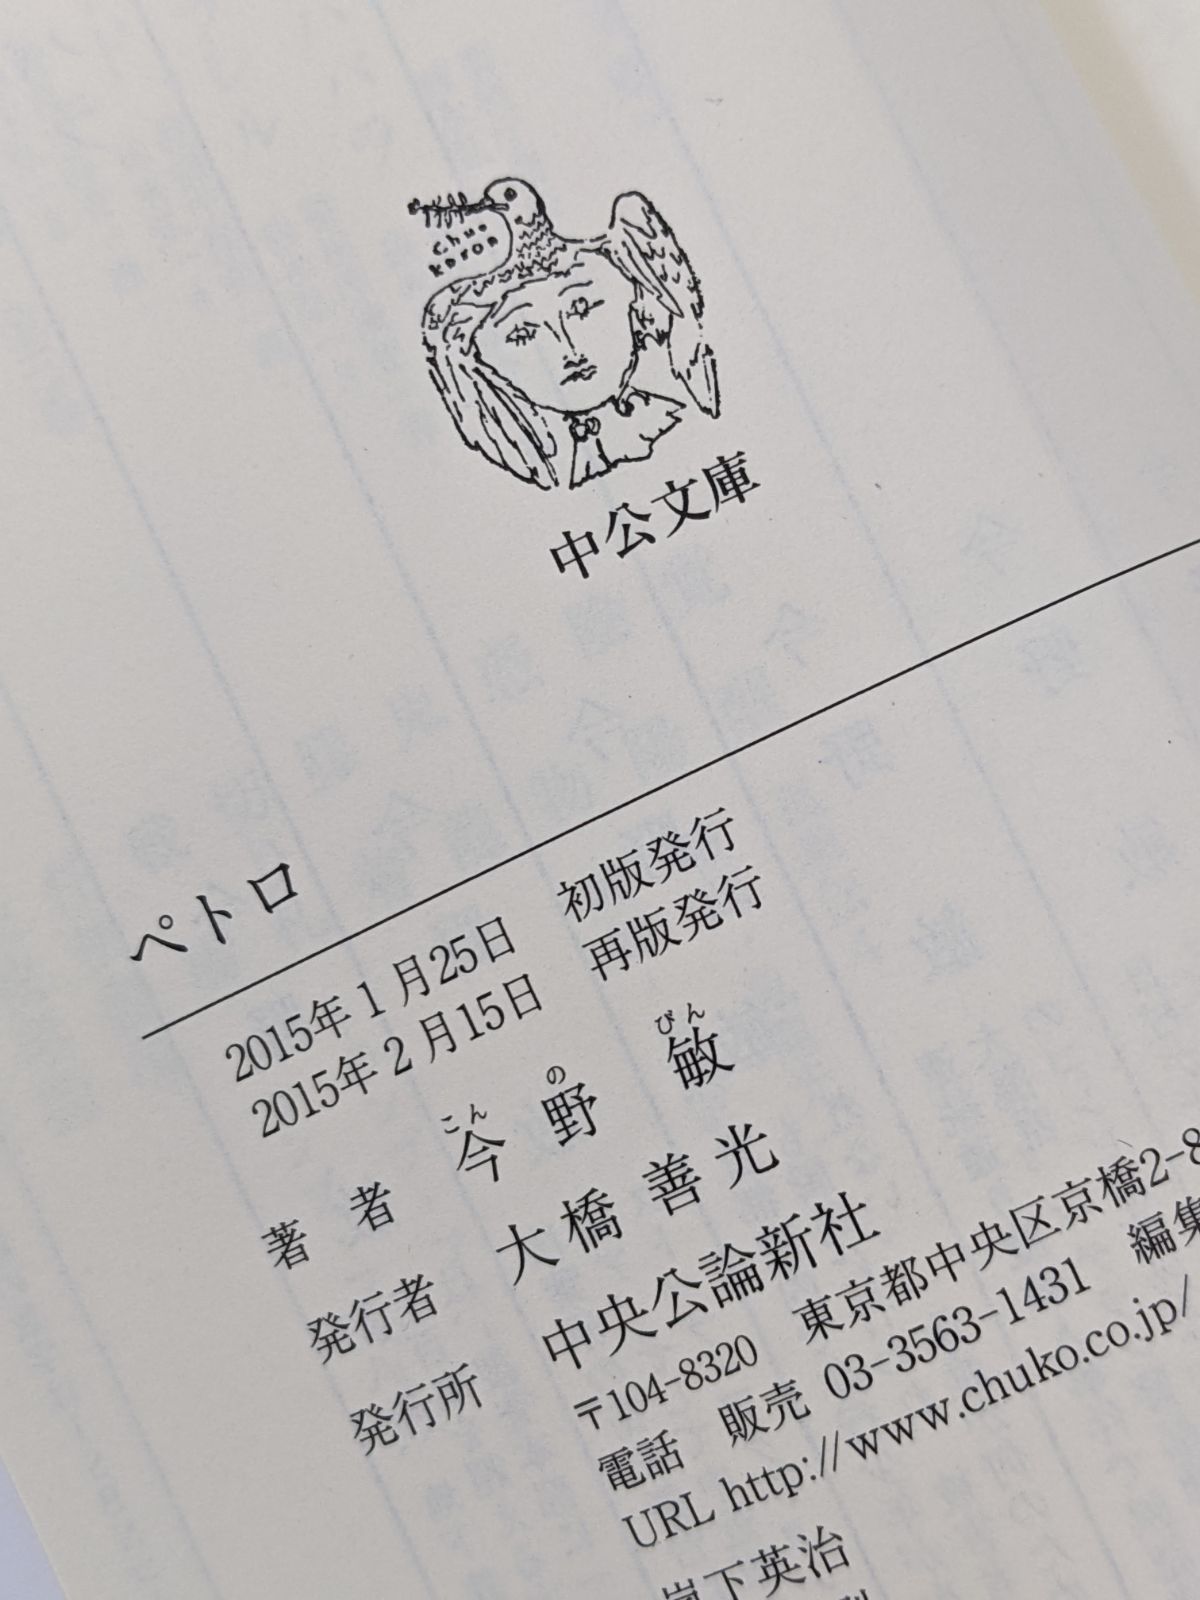 Chuo
koron
中公文庫
ペトロ
2015年1月25日 初版発行
2015年2月15日 再版発行
著者 今野敏
こん の びん
発行者 大橋善光
発行所 中央公論新社
〒104-8320 東京都中央区京橋2-8
電話 販売 03-3563-1431 編集
URL http://www.chuko.co.jp/
嵐下英治